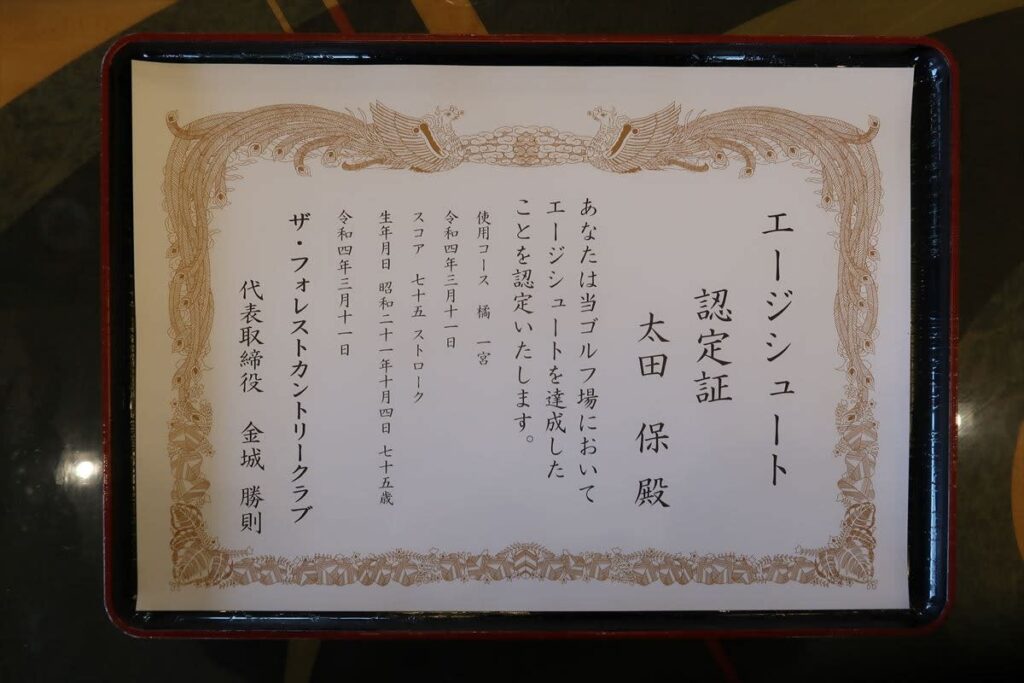 エージシュート
認定証
太田 保 殿
あなたは当ゴルフ場において
エージシュートを達成した
ことを認定いたします。
使用コース 橘 一宮
令和四年三月十一日
スコア 七十五 ストローク
生年月日 昭和二十一年十月四日 七十五歳
令和四年三月十一日
ザ・フォレストカントリークラブ
代表取締役 金城 勝則